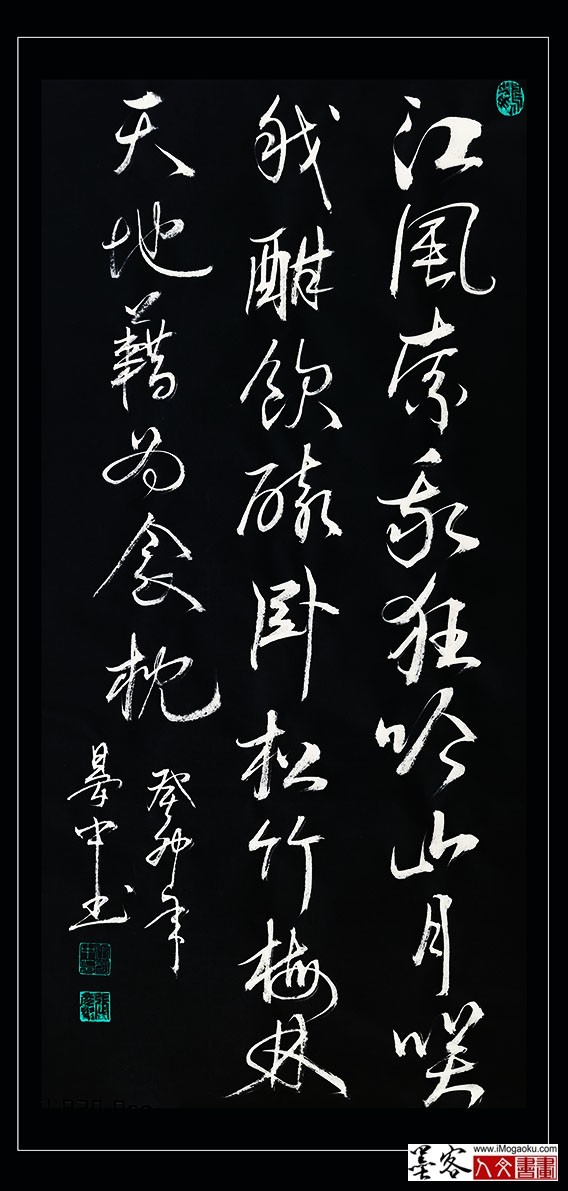 江風索我狂吟山月咲
我酣飲醉卧松竹梅林
天地藉为衾枕
癸卯年
中书
墨客
www.iMogaoku.com
人文書畫